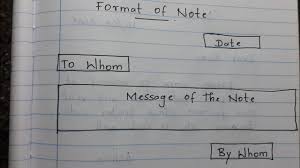 Format of Note
Date
To Whom
Message of the Note
By Whom